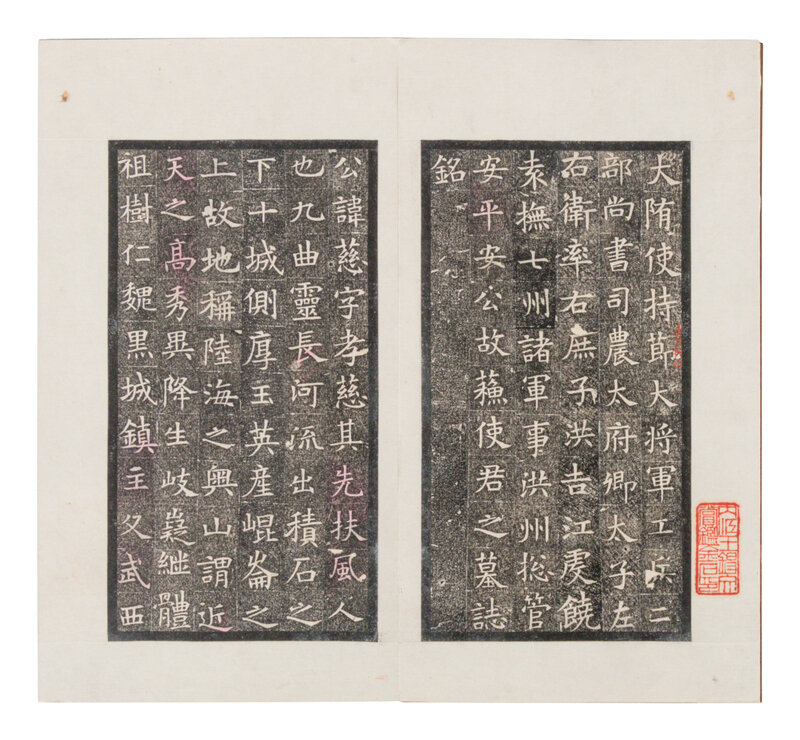 大隋使持節大將軍工兵二
部尚書司農太府卿太子左
右衛率右庶子洪吉江虔饒
袁撫七州諸軍事洪州揔管
安平安公故蘓使君之墓誌
銘
公諱慈字孝慈其先扶風人
也九曲靈長河流出積石之
下十城側厚玉英產崐崙之
上故地稱陸海之奧山謂近
天之髙秀異降生岐嶷継體
祖樹仁魏黒城鎮主父武西